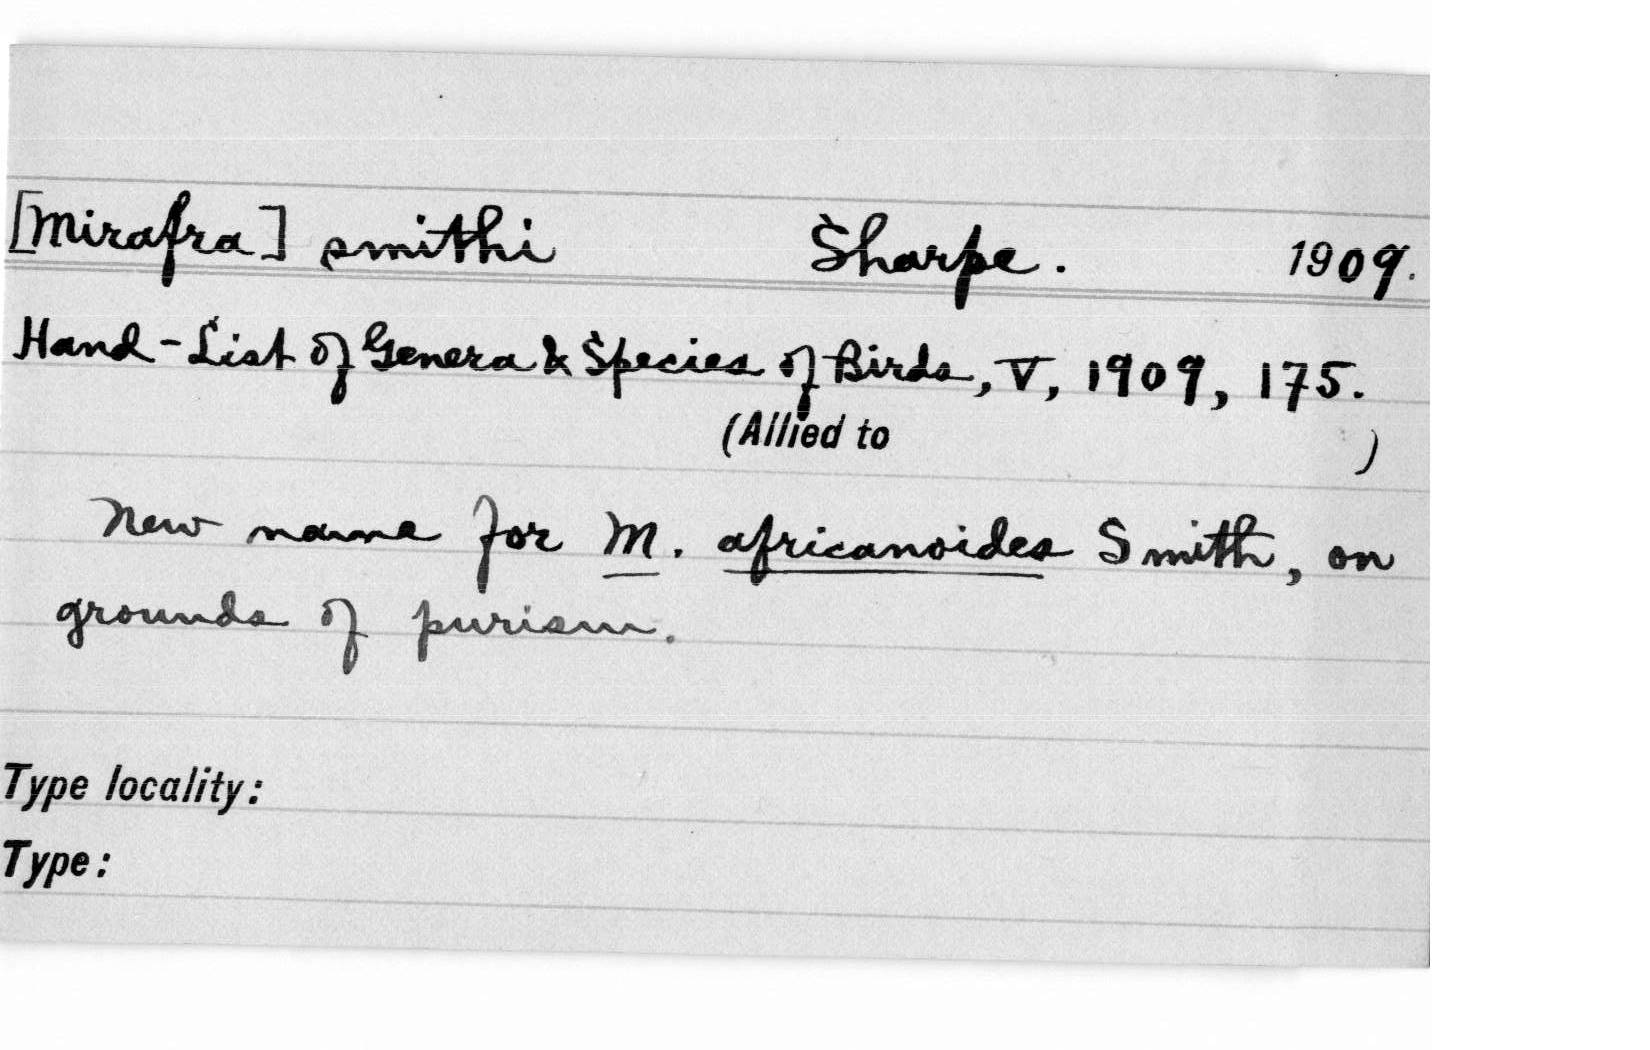 [Mirafra] smithi Sharpe. 1909.
Hand-List of Genera & Species of Birds, V, 1909, 175.
(Allied to )
New name for M. africanoides Smith, on
grounds of purism.
Type locality:
Type: